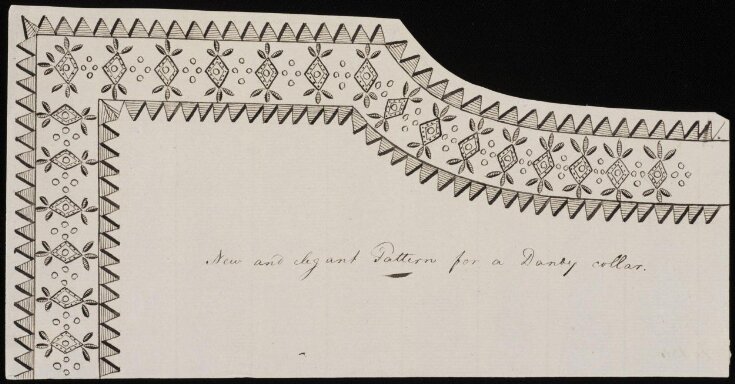 New and elegant Pattern for a Danby collar.